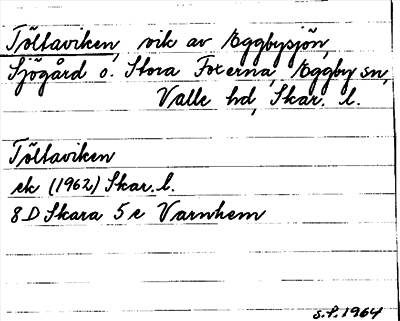 Töltaviken, vik av Eggbysjön,
Sjögård o. Stora Foxerna, Eggby sn,
Valle hd, Skar. l.
Töltaviken
ek (1962) Skar. l.
8D Skara 5e Varnhem
S.F. 1964